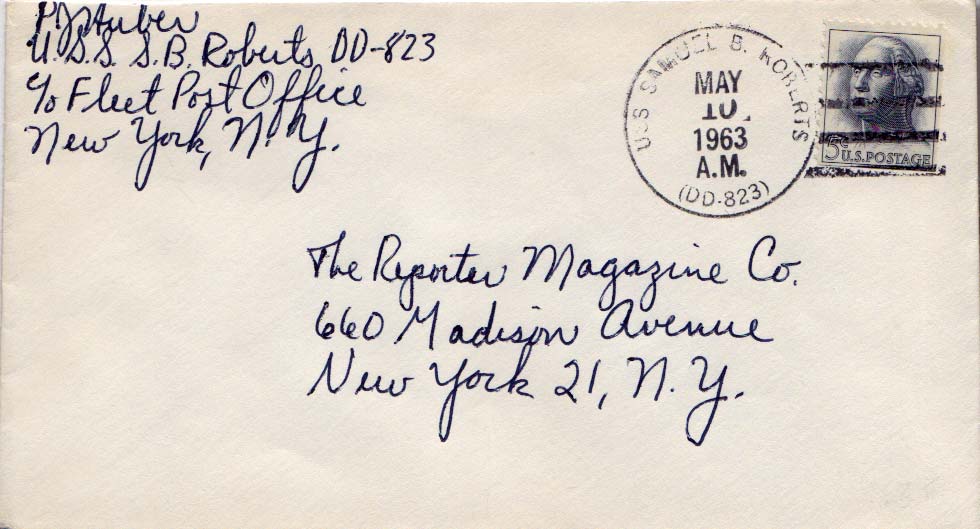 P J Huber
U.S.S. S.B. Roberts, DD-823
c/o Fleet Post Office
New York, N.Y.
USS SAMUEL B. ROBERTS
MAY
10
1963
A.M.
(DD-823)
5¢
U.S. POSTAGE
The Reporter Magazine Co.
660 Madison Avenue
New York 21, N.Y.